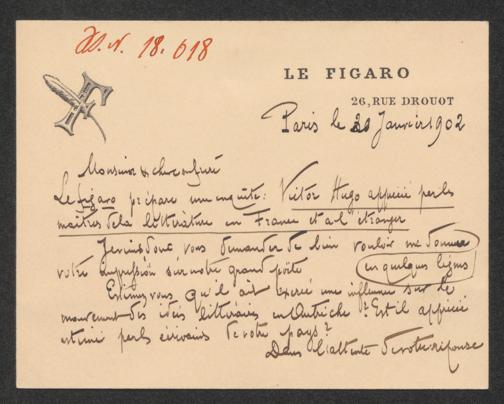 I.N. 18.618
F
LE FIGARO
26, RUE DROUOT
Paris le 20 Janvier 1902
Monsieur & cher confrère
Le figaro prépare une enquête: Victor Hugo apprécié par les
maîtres de la littérature en France et à l'étranger
Je viens donc vous demander de bien vouloir me donner
votre impression sur notre grand poète en quelques lignes
Estimez vous qu'il ait exercé une influence sur le
mouvement des idées littéraires en Autriche? Est il apprécié
estimé par les écrivains de votre pays?
Dans l'attente de votre réponse